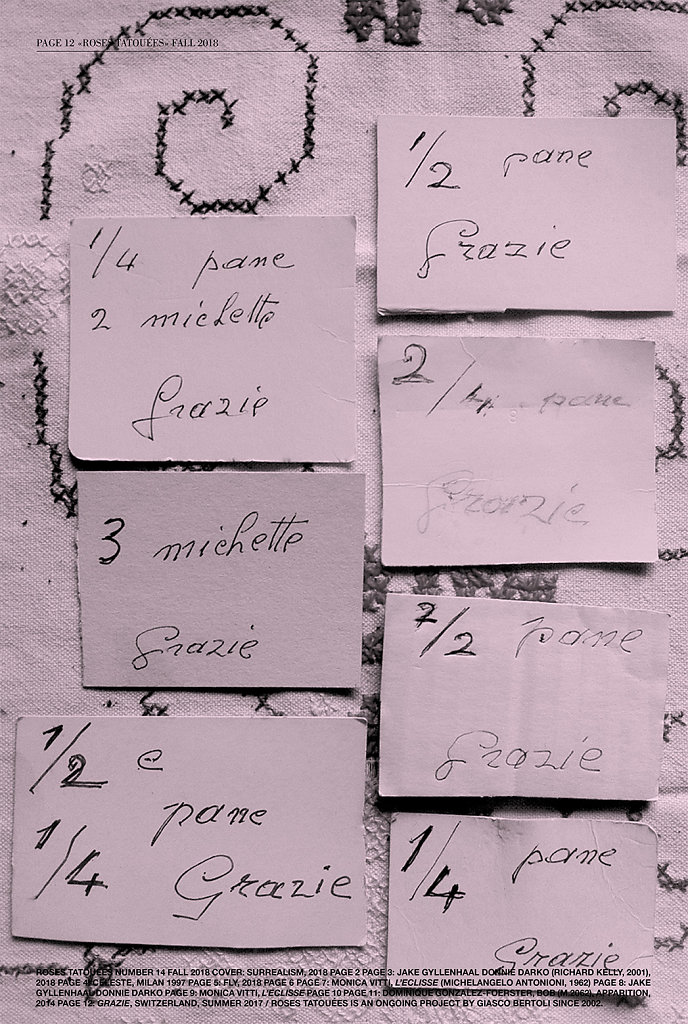 PAGE 12 «ROSES TATOUÉES» FALL 2018
1/2 pane
Grazie
1/4 pane
2 michette
Grazie
2/4 pane
Grazie
3 michette
Grazie
1/2 pane
Grazie
1/2 e
pane
1/4
Grazie
1/4 pane
Grazie
ROSES TATOUÉES NUMBER 14 FALL 2018 COVER: SURREALISM, 2018 PAGE 2 PAGE 3: JAKE GYLLENHAAL DONNIE DARKO (RICHARD KELLY, 2001),
2018 PAGE 4: CELESTE, MILAN 1997 PAGE 5: FLY, 2018 PAGE 6 PAGE 7: MONICA VITTI, L'ECLISSE (MICHELANGELO ANTONIONI, 1962) PAGE 8: JAKE
GYLLENHAAL DONNIE DARKO PAGE 9: MONICA VITTI, L'ECLISSE PAGE 10 PAGE 11: DOMINIQUE GONZALEZ-FOERSTER, BOB (M.2062), APPARITION,
2014 PAGE 12: GRAZIE, SWITZERLAND, SUMMER 2017 / ROSES TATOUÉES IS AN ONGOING PROJECT BY GIASCO BERTOLI SINCE 2002.